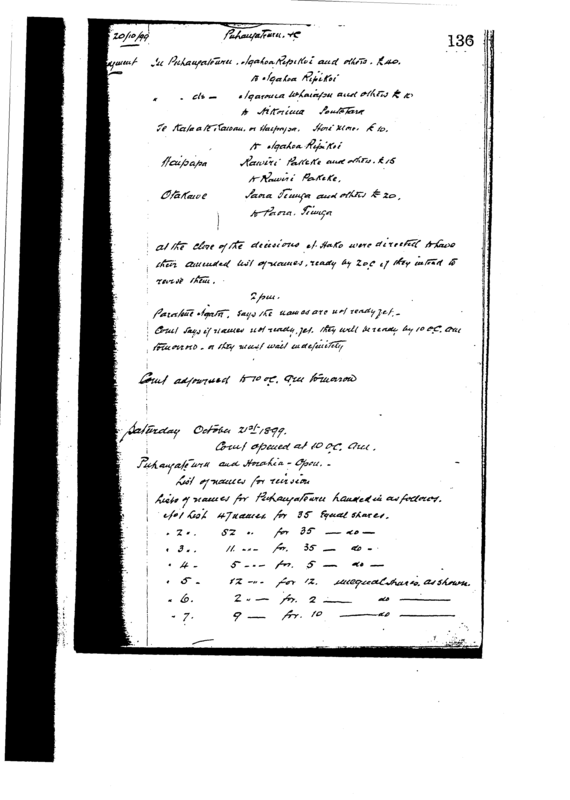 20/10/99 Puhangatouru, &c 136
In Puhangatouru. Ngahoa Ripikoi and others. £40.
to Ngahoa Ripikoi
" - do - Ngaronia Wharapu and others £
to
Te or Haipapa. £10.
to Ngahoa Ripikoi
Haipapa Rawiri Pakeke and others. £15
to Rawiri Pakeke.
Otakawe Paora Tiunga and others £20.
to Paora. Tiunga
At the close of the decisions were directed to have
their amended list of names, ready by 2 o.c. if they intend to
revise them.
2 p.m.
says the names are not ready yet. -
Court says if names not ready, yet. they will be ready by 10 o.c. am
tomorrow - or they must wait indefinitely
Court adjourned to 10 o.c. am tomorrow
Saturday October 21st 1899.
Court opened at 10 o.c. am.
Puhangatouru and Horahia - Open. -
List of names for revision
Lists of names for Puhangatouru handed in as follows.
No 1 List 47 names for 35 Equal shares.
" 2 " . 52 " . for 35 — do —
" 3 " . 11 - - - for. 35 — do -
" 4 - 5 - - - for. 5 — do —
" 5 - 12 - - - for 12. unequal shares. as shown.
" 6. 2 - — for. 2 — do —
" 7. 9 — for. 10 — do —